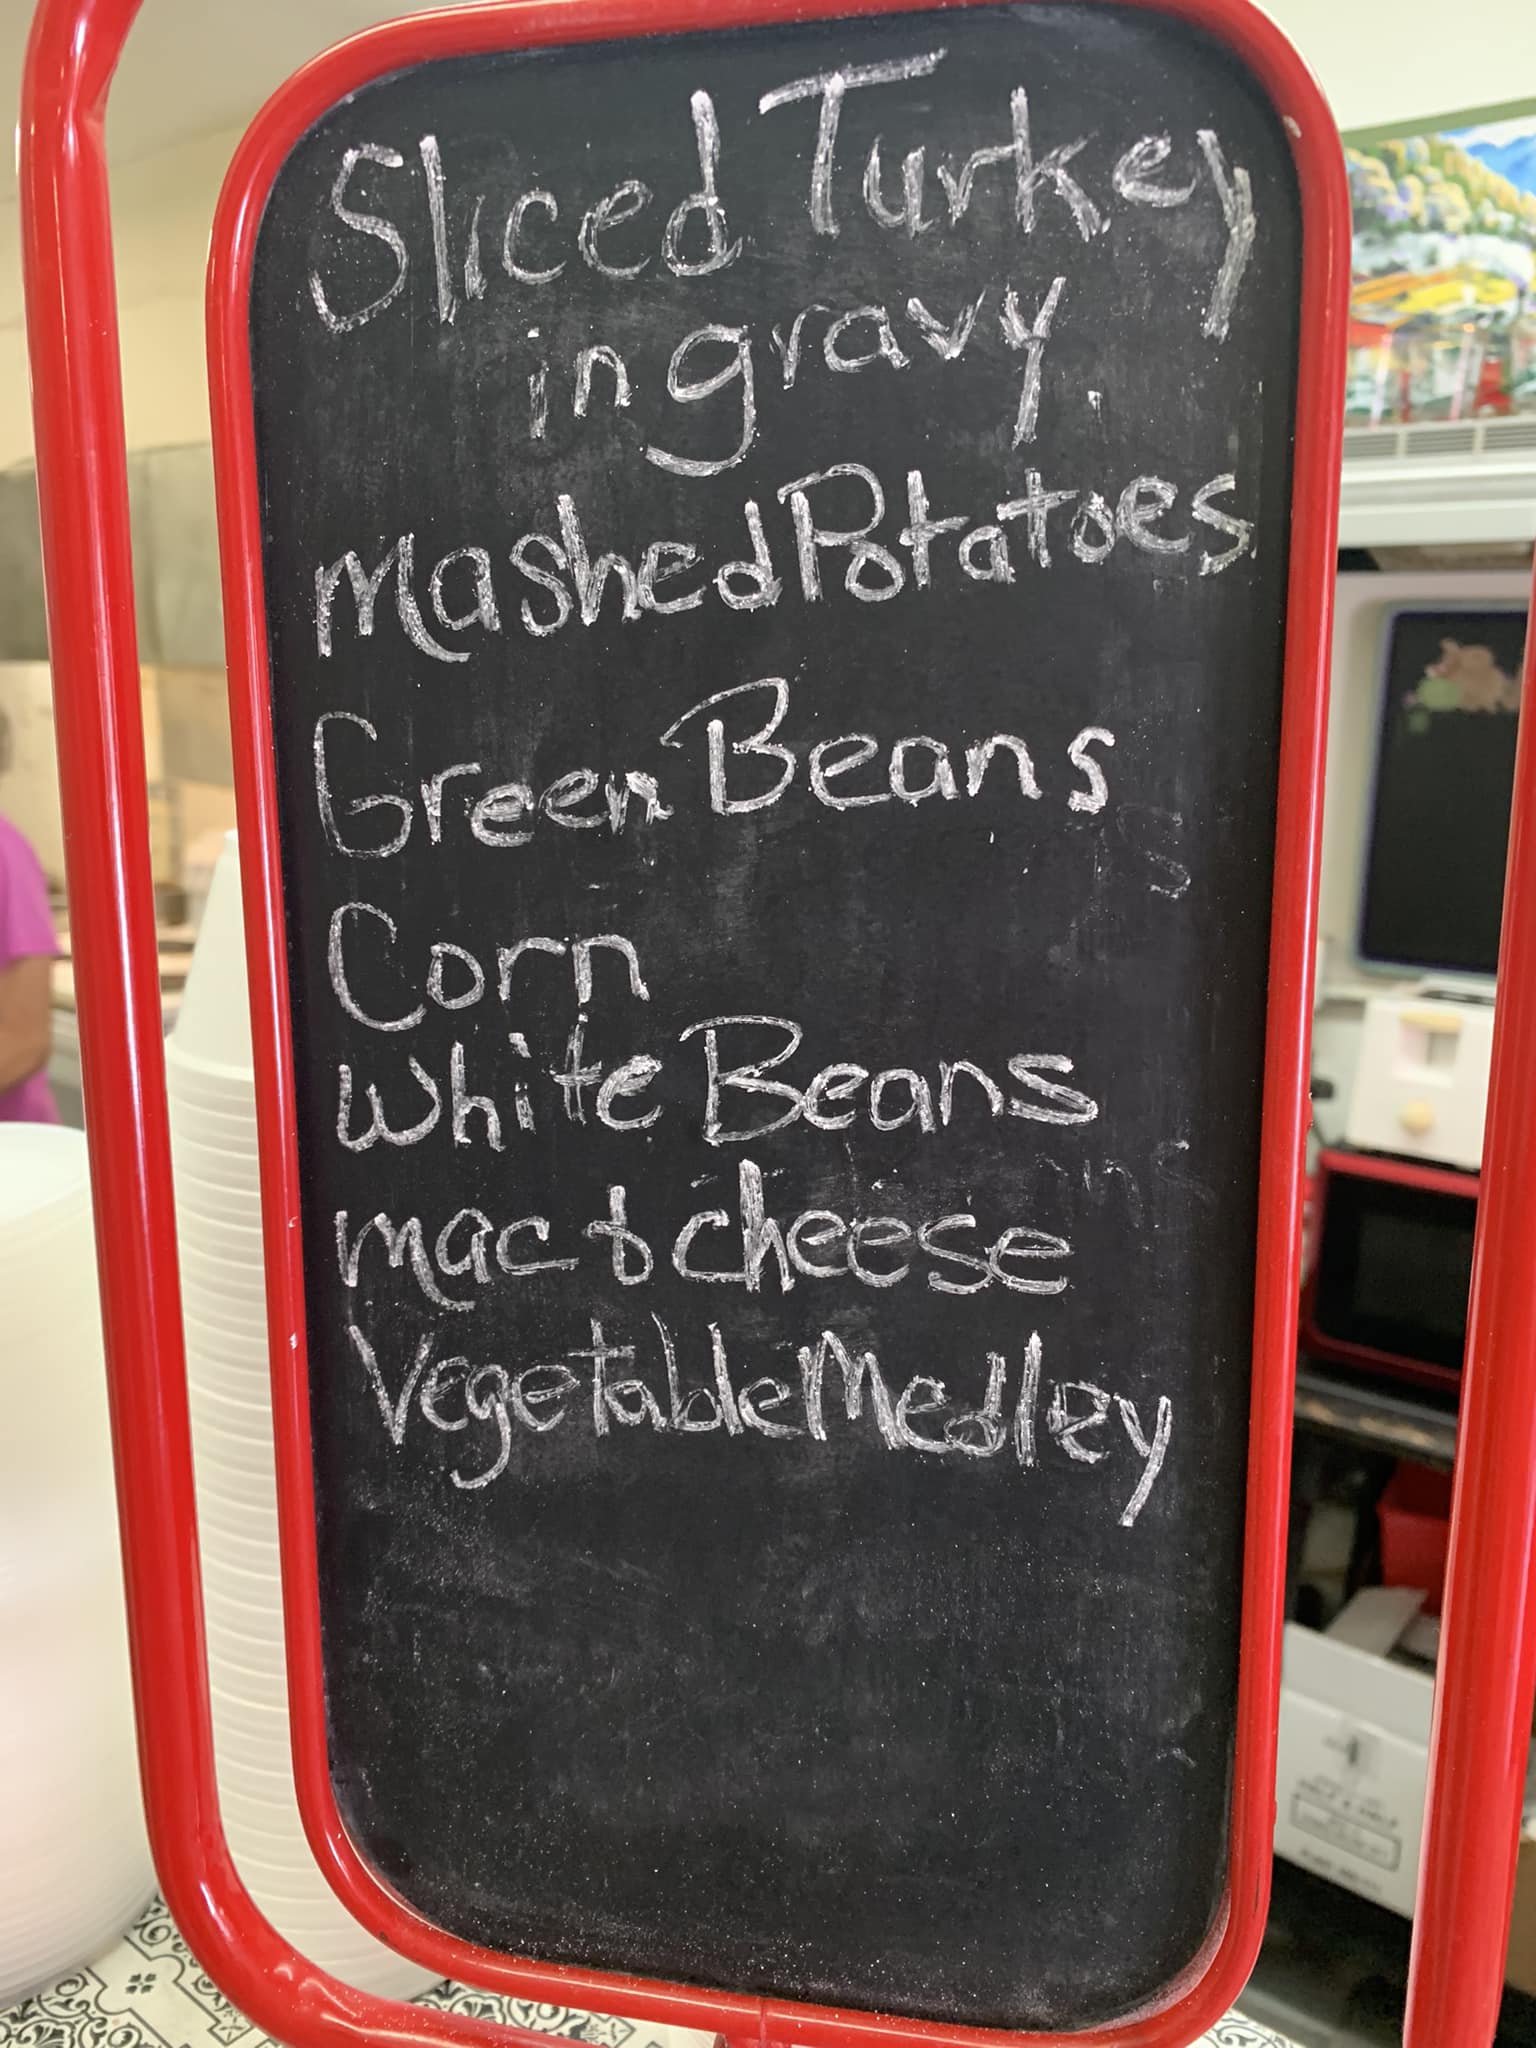 Sliced Turkey
in gravy
Mashed Potatoes
Green Beans
Corn
White Beans
mac & cheese
Vegetable Medley